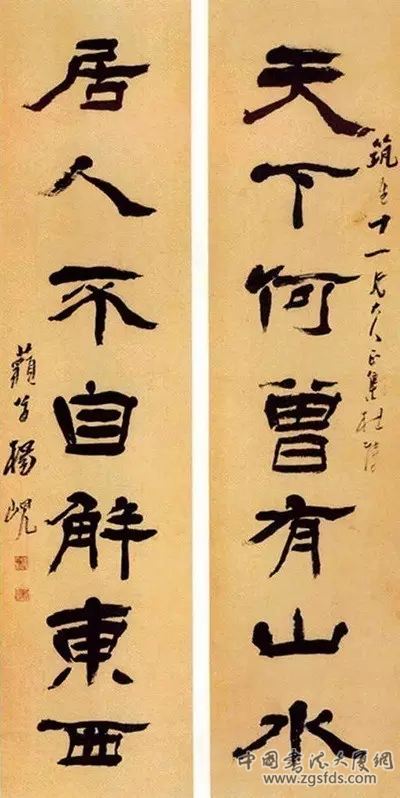 天下何曾有山水
十一兄大人正集
居人不自解東西
藐翁楊峴
中国书法大厦網
www.zgsfds.com